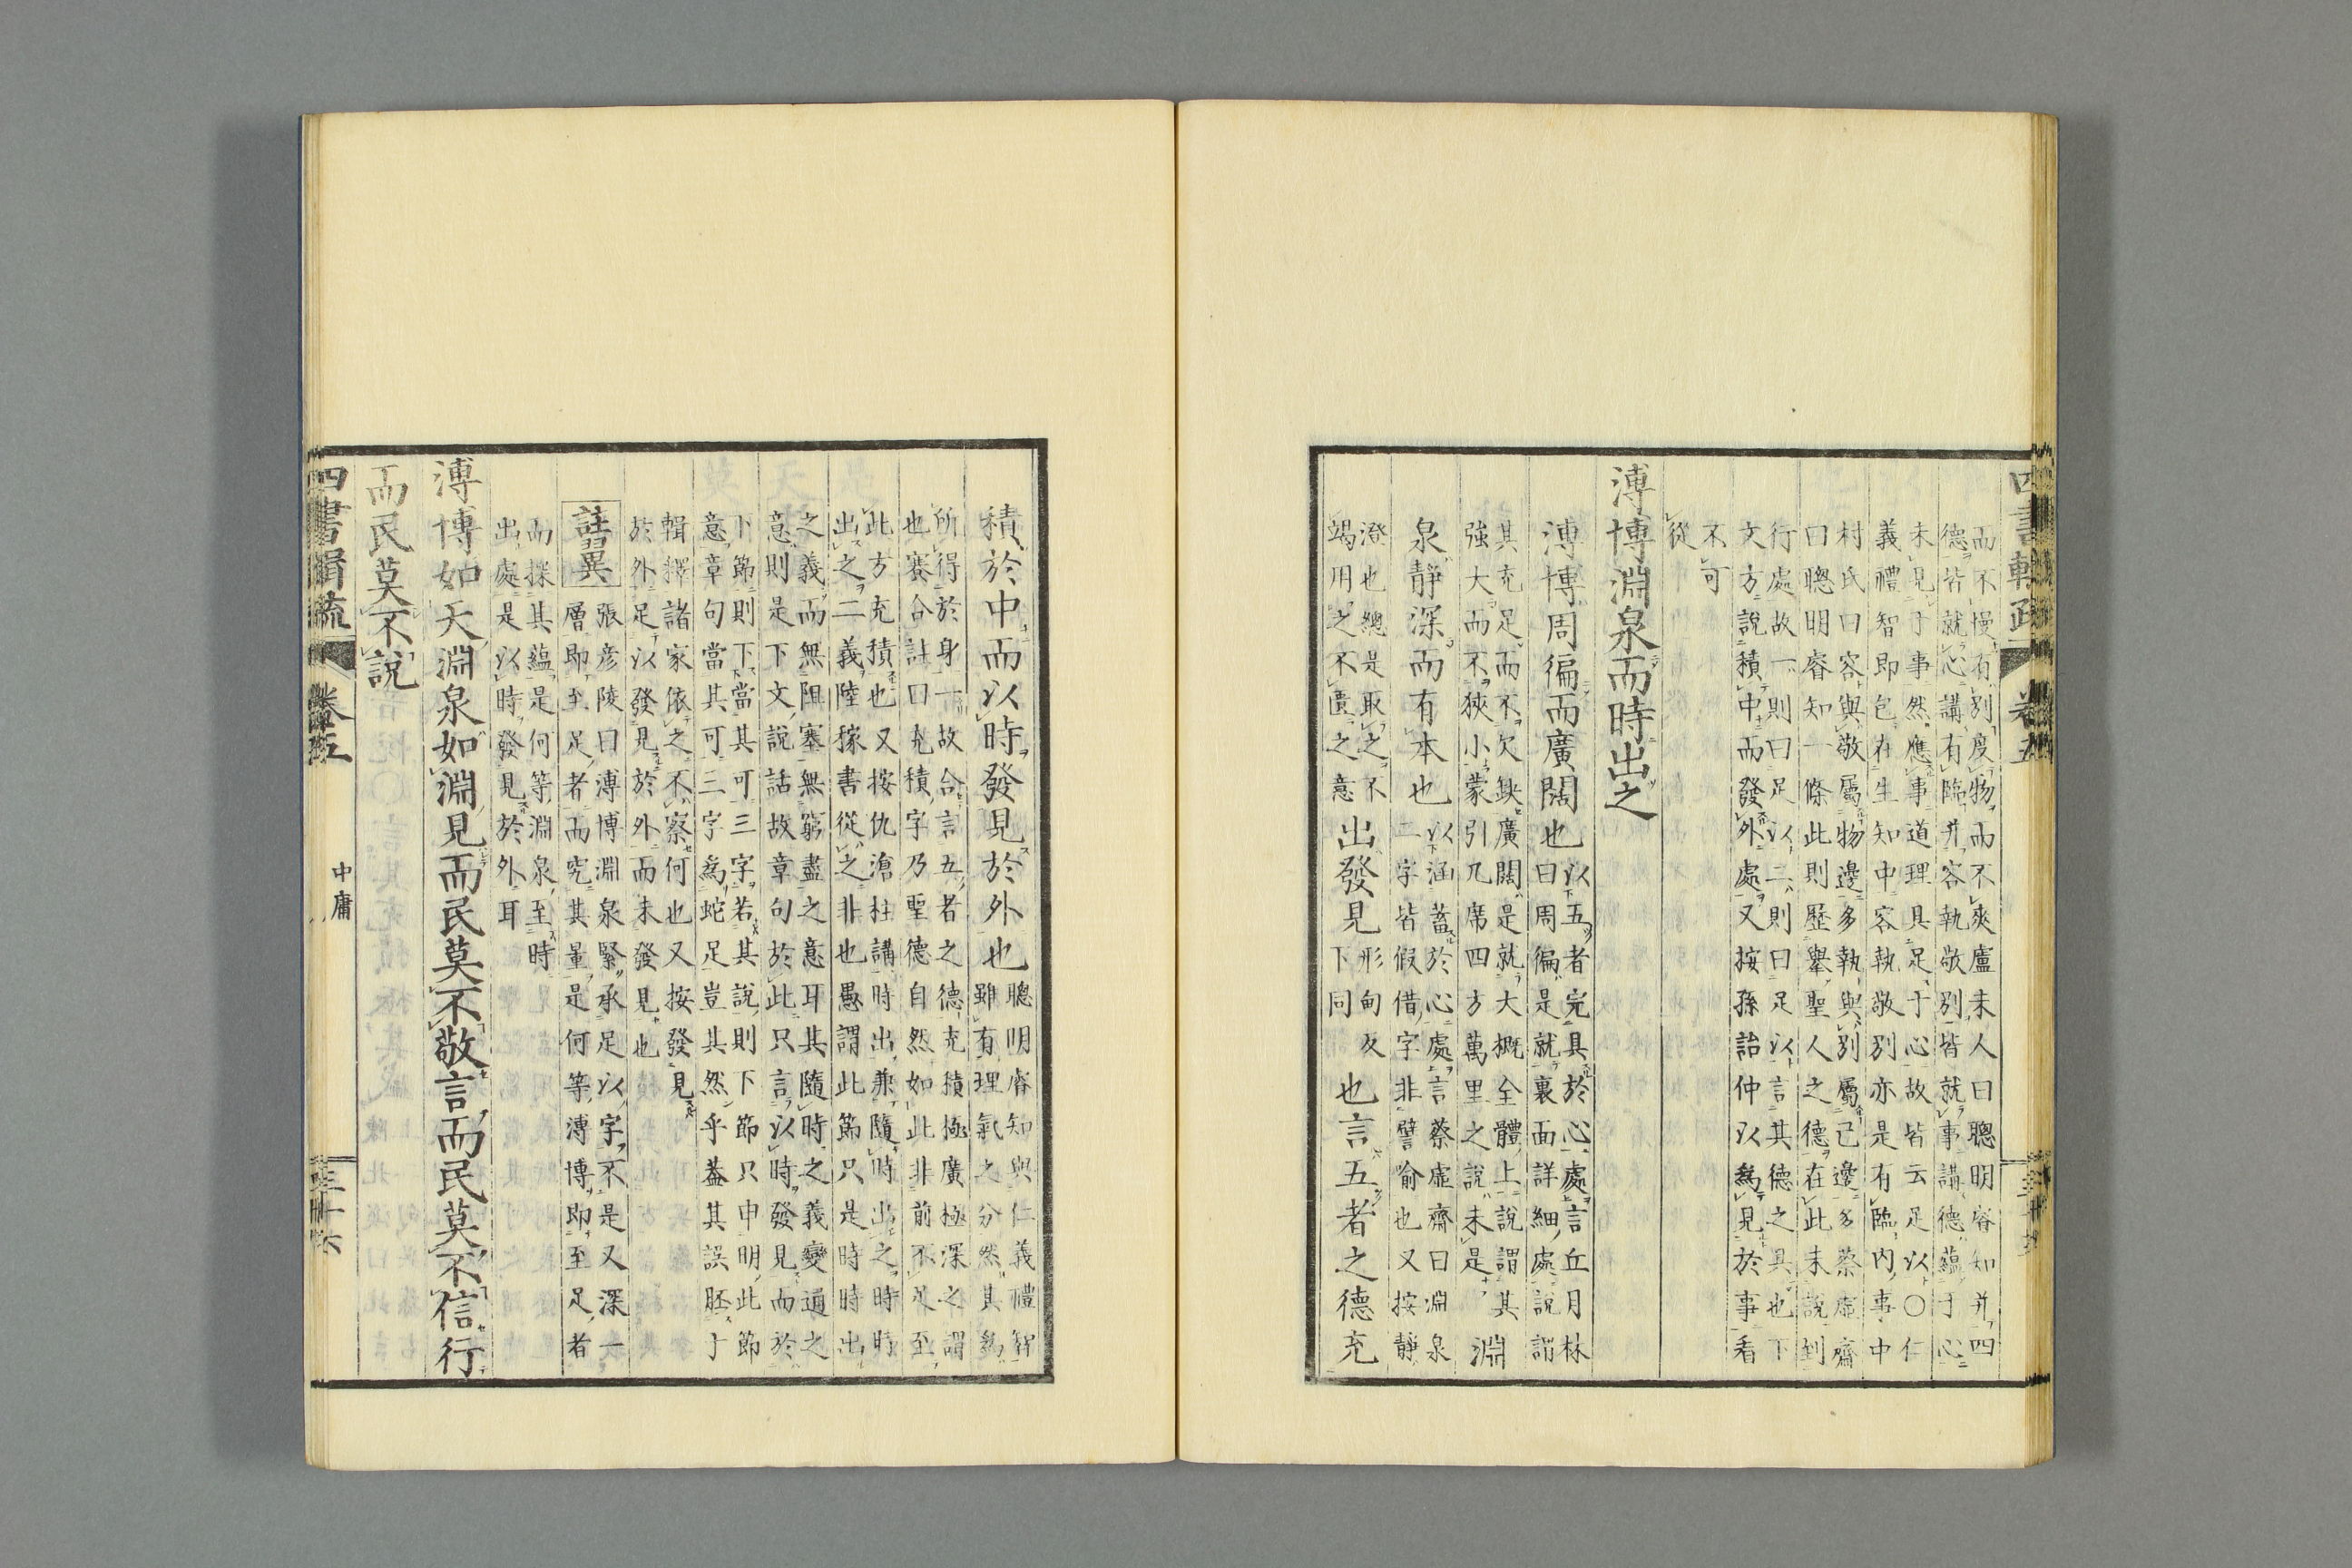 四書輯疏 卷五
而不慢有別度物而不爽盧未人曰聰明睿知并四
德皆就心講有臨并容執敬別皆就事講德蘊于心
未見于事然應事道理具足于心故皆云足以〇仁
義禮智即包在生知中容執敬別亦是有臨内事中
村氏曰容與敬屬物邊多執與別屬己邊多蔡虛齋
曰聰明睿知一條此則歷舉聖人之德在此未說到
行處故一則曰足以二則曰足以言其德之具也下
文方說積中而發外處又按孫詒仲以爲見於事看
不可
從
溥博淵泉而時出之
溥博周徧而廣闊也
以五者完具於心處言丘月林
曰周徧是就裏面詳細處說謂
其充足而不欠缺廣闊是就大概全體上說謂其
強大而不狹小蒙引凡席四方萬里之說未是
淵
泉靜深而有本也
以涵蓄於心處言蔡虛齋曰淵泉
二字皆假借字非譬喻也又按靜
澄也總是取之不
竭用之不匱之意
出發見
形甸反
下同
也言五者之德充
積於中而以時發見於外也
聰明睿知與仁義禮智
雖有理氣之分然其爲
所得於身一故合言五者之德充積極廣極深之謂
也賽合註曰充積字乃聖德自然如此非前不足至
此方充積也又按仇滄柱講時出兼隨時出之時時
出之二義陸稼書從之非也愚謂此節只是時時出
之義而無阻塞無窮盡之意耳其隨時之義變通之
意則是下文說話故章句於此只言以時發見而於
下節則下當其可三字若其說則下節只申明此節
意章句當其可三字爲蛇足豈其然乎蓋其誤胚于
輯釋諸家依之不察何也又按發見
於外足以發見於外而未發見也
註翼
張彥陵曰溥博淵泉緊承足以字不是又深一
層即至足者而究其量是何等溥博即至足者
而探其蘊是何等淵泉至時
出處是以時發見於外耳
溥博如天淵泉如淵見而民莫不敬言而民莫不信行
而民莫不說
四書輯疏 卷五 中庸 三十六